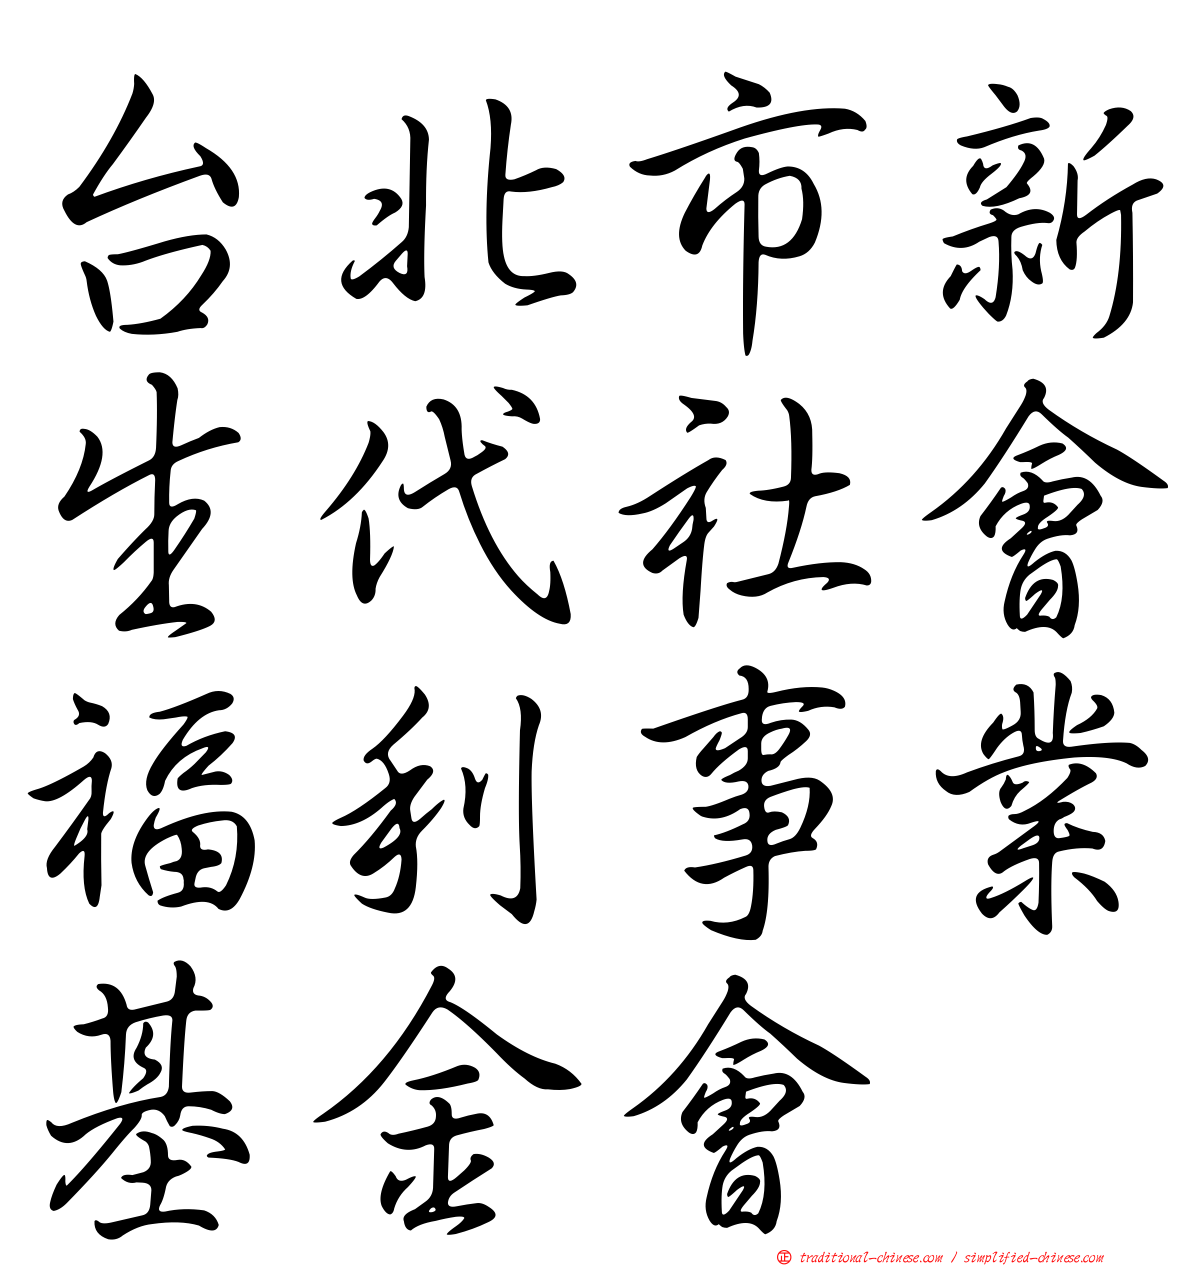 台北市新
生代社會
福利事業
基金會
正 traditional-chinese.com / simplified-chinese.com